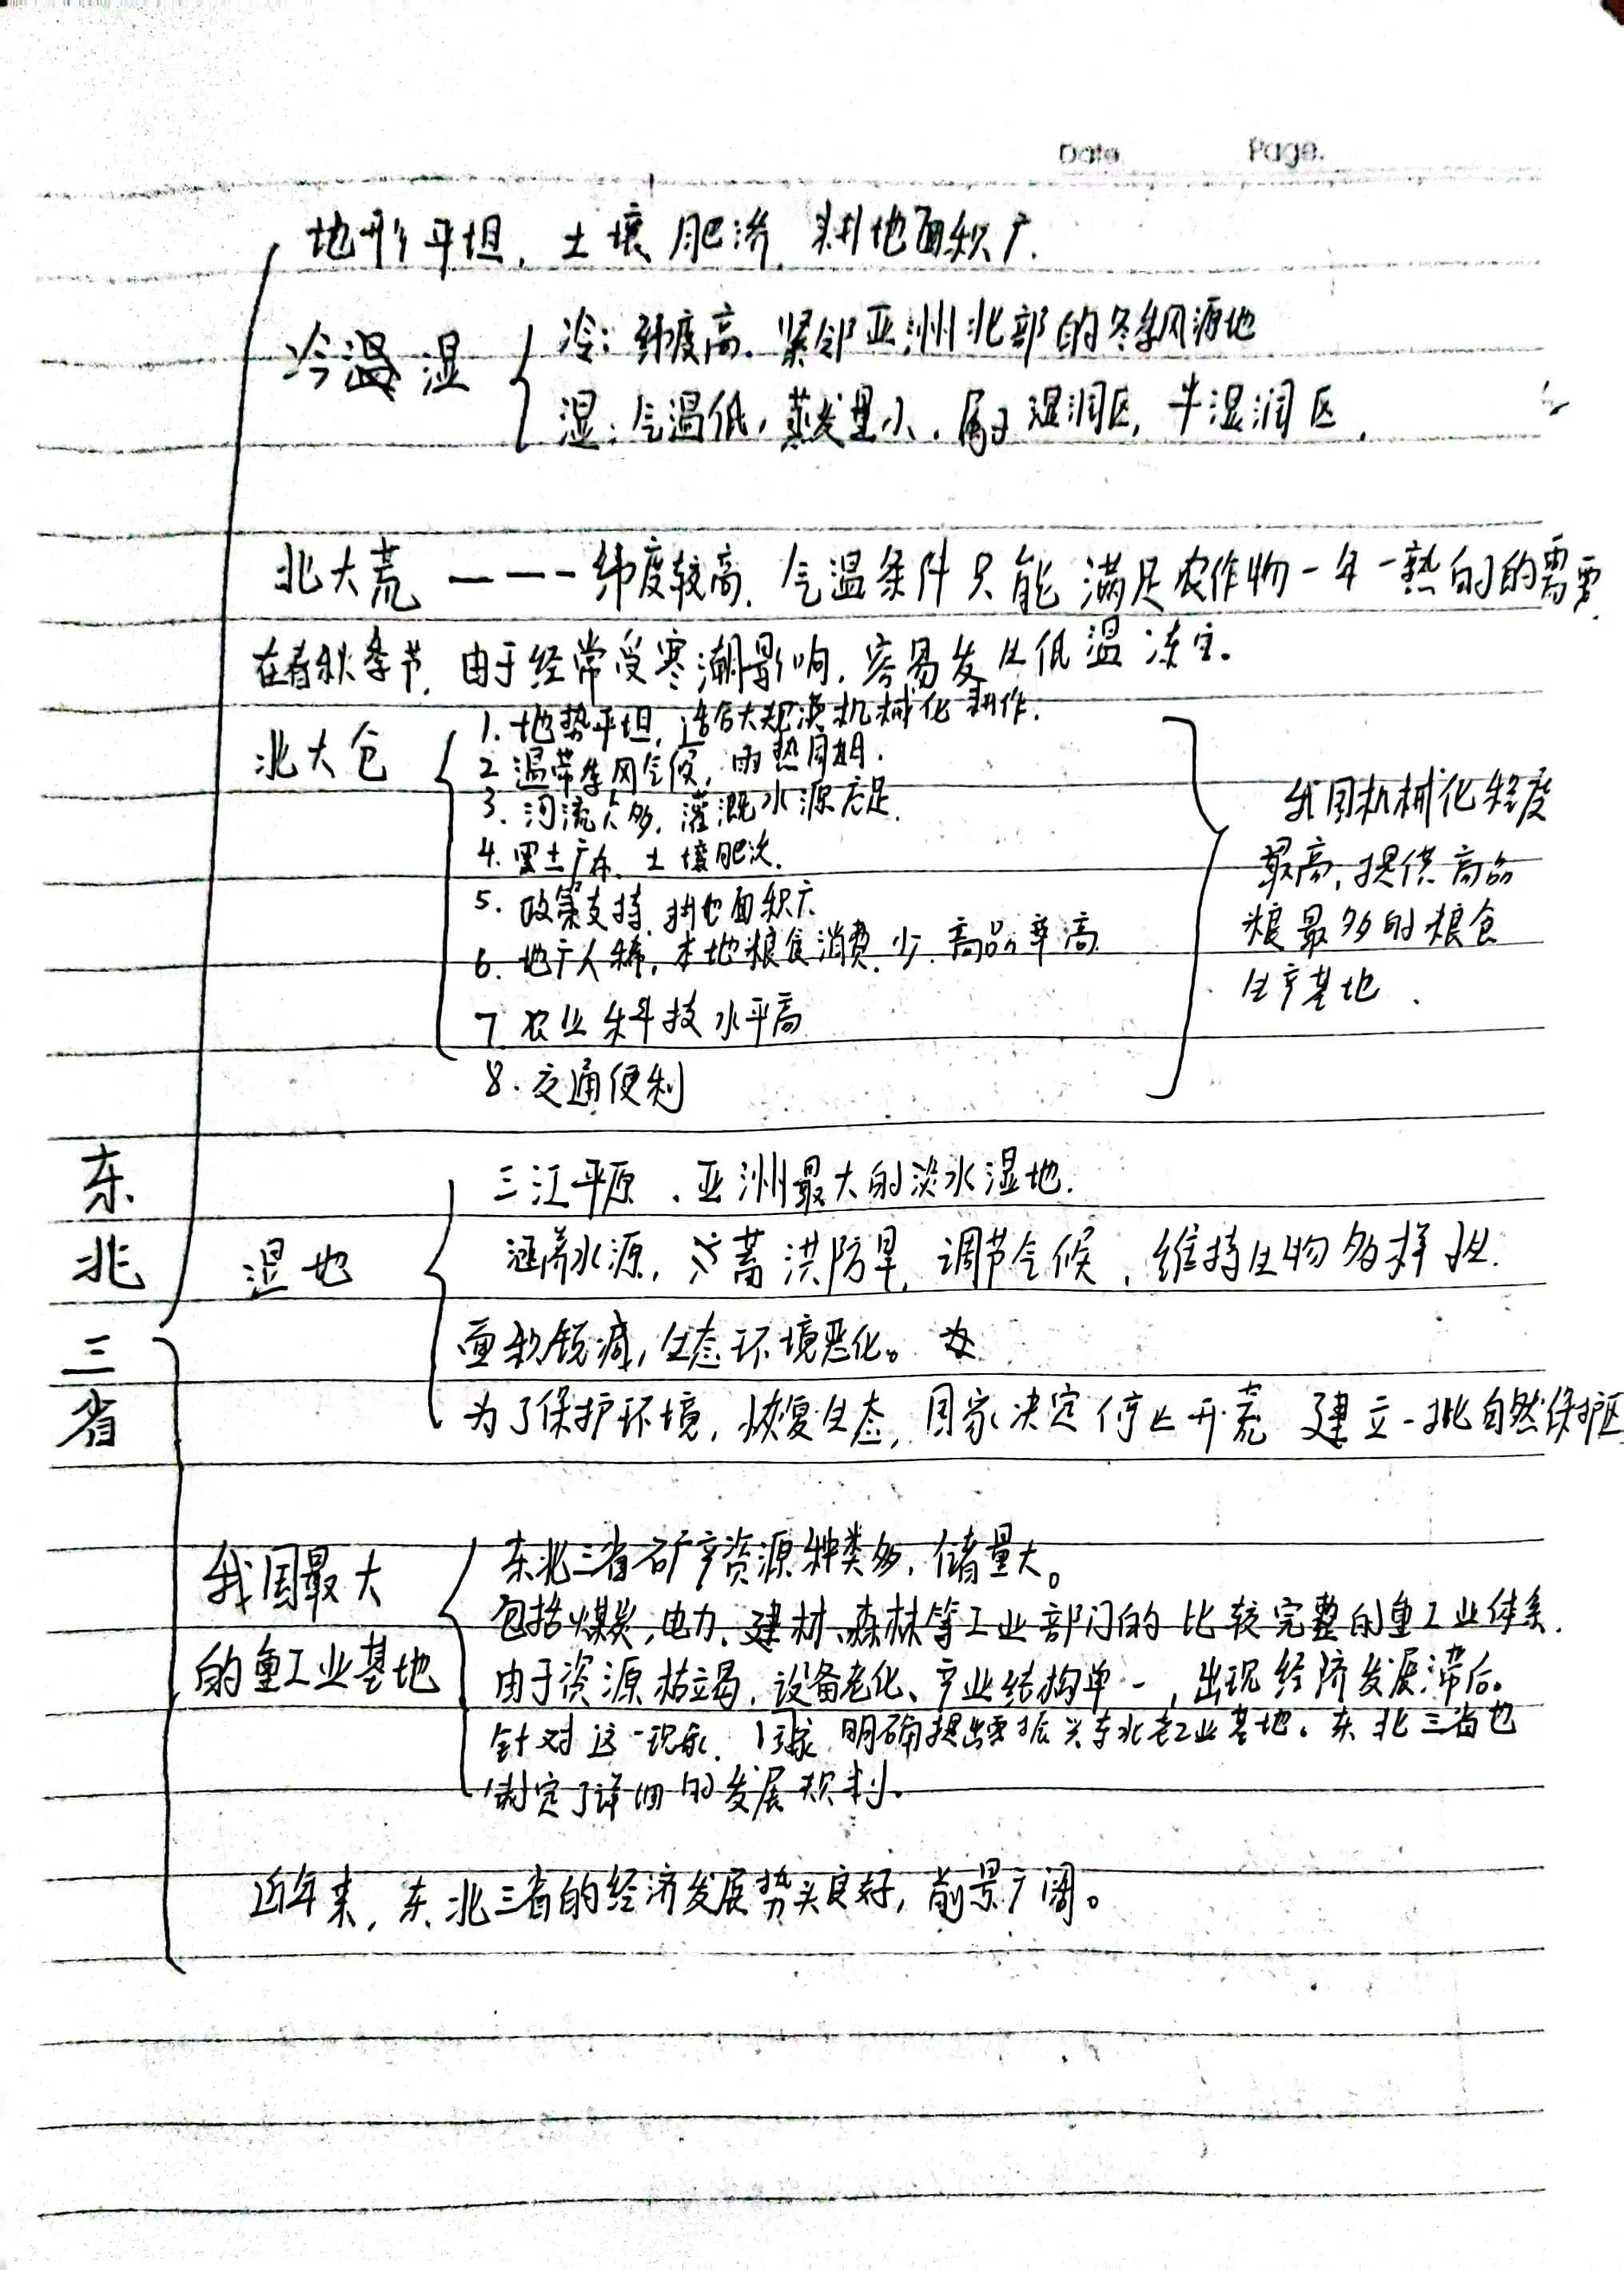 Date Page.
地形平坦,土壤肥沃,耕地面积广.
冷湿 冷:纬度高.紧邻亚洲北部的冬季风源地
湿:气温低,蒸发量小.属于湿润区,半湿润区.
北大荒 ———纬度较高.气温条件只能满足农作物一年一熟的的需要.
在春秋季节,由于经常受寒潮影响,容易发生低温冻害.
北大仓
1.地势平坦,适合大规模机械化耕作.
2 温带季风气候,雨热同期.
3.河流众多,灌溉水源充足.
4.黑土广布,土壤肥沃.
5.政策支持,耕地面积广
6.地广人稀,本地粮食消费少,商品率高
7.农业科技水平高
8.交通便利
我国机械化程度
最高,提供商品
粮最多的粮食
生产基地.
东北三省
湿地
三江平原.亚洲最大的淡水湿地.
涵养水源,蓄洪防旱,调节气候,维持生物多样性.
面积锐减,生态环境恶化。
为了保护环境,恢复生态,国家决定停止开荒 建立一批自然保护区
我国最大
的重工业基地
东北三省矿产资源种类多,储量大。
包括煤炭,电力、建材、森林等工业部门的比较完整的重工业体系.
由于资源枯竭,设备老化、产业结构单一,出现经济发展滞后。
针对这一现象,国家明确提出要振兴东北老工业基地。东北三省也
制定了详细的发展规划。
近年来,东北三省的经济发展势头良好,前景广阔。